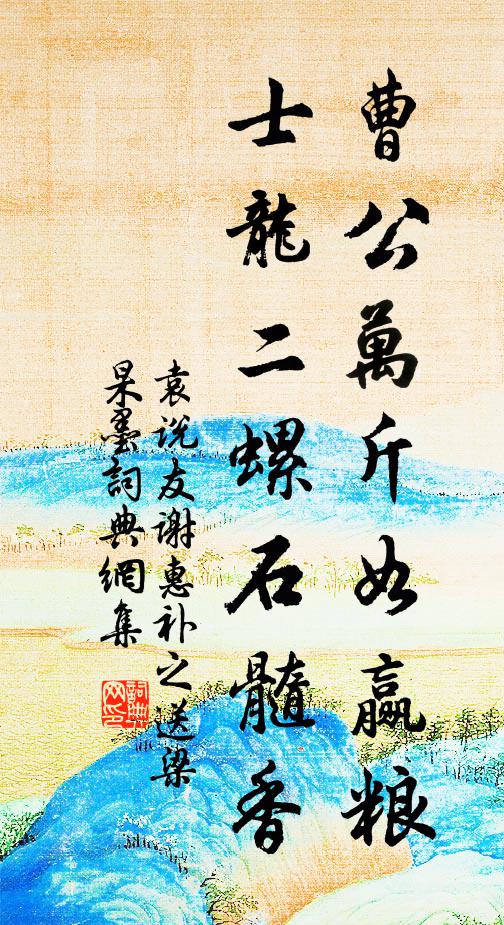 曹公萬斤如贏粮
士龍二螺石髓香
袁说友谢惠补之送梁
杲墨詞典網集
詞典网印